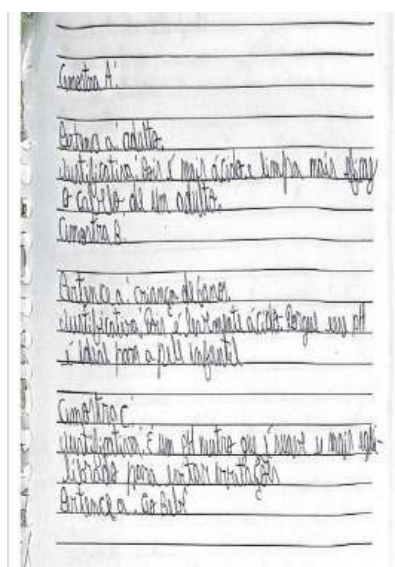 Amostra A:
Pertence a: adulto.
Justificativa: Pois é mais ácido e limpa mais eficaz
o cabelo de um adulto.
Amostra B.
Pertence a: criança de 6 anos.
Justificativa: Pois é levemente ácido. Porque seu pH
é ideal para a pele infantil
Amostra C
Justificativa: É um pH neutro que é suave e mais equi-
librado para evitar irritações
Pertence a: Ao Bebê